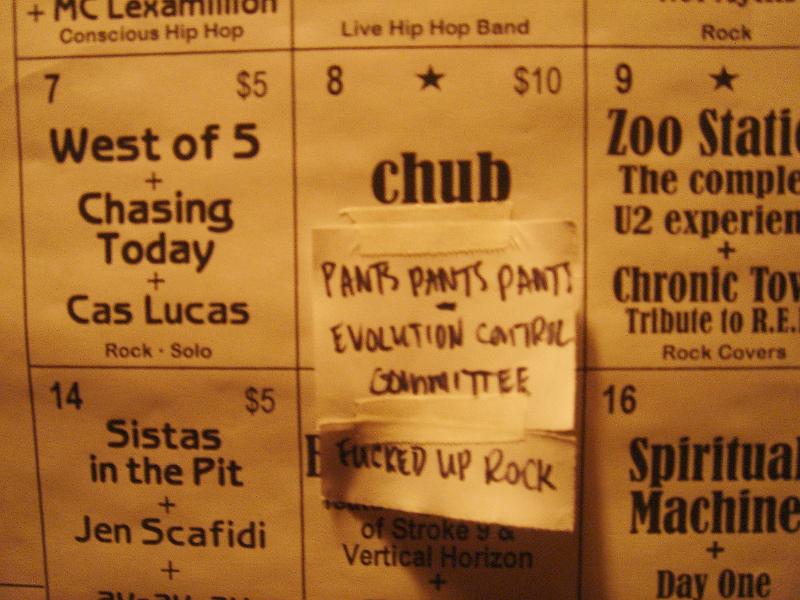 + MC Lexamillion
Conscious Hip Hop
Live Hip Hop Band
Rock
7 $5
West of 5
+
Chasing
Today
+
Cas Lucas
Rock · Solo
8 ★ $10
chub
PANTS PANTS PANTS
-
EVOLUTION CONTROL
COMMITTEE
FUCKED UP ROCK
9 ★
Zoo Stati
The comple
U2 experien
+
Chronic Tow
Tribute to R.E.
Rock Covers
14 $5
Sistas
in the Pit
+
Jen Scafidi
+
of Stroke 9 &
Vertical Horizon
+
16
Spiritual
Machine
+
Day One